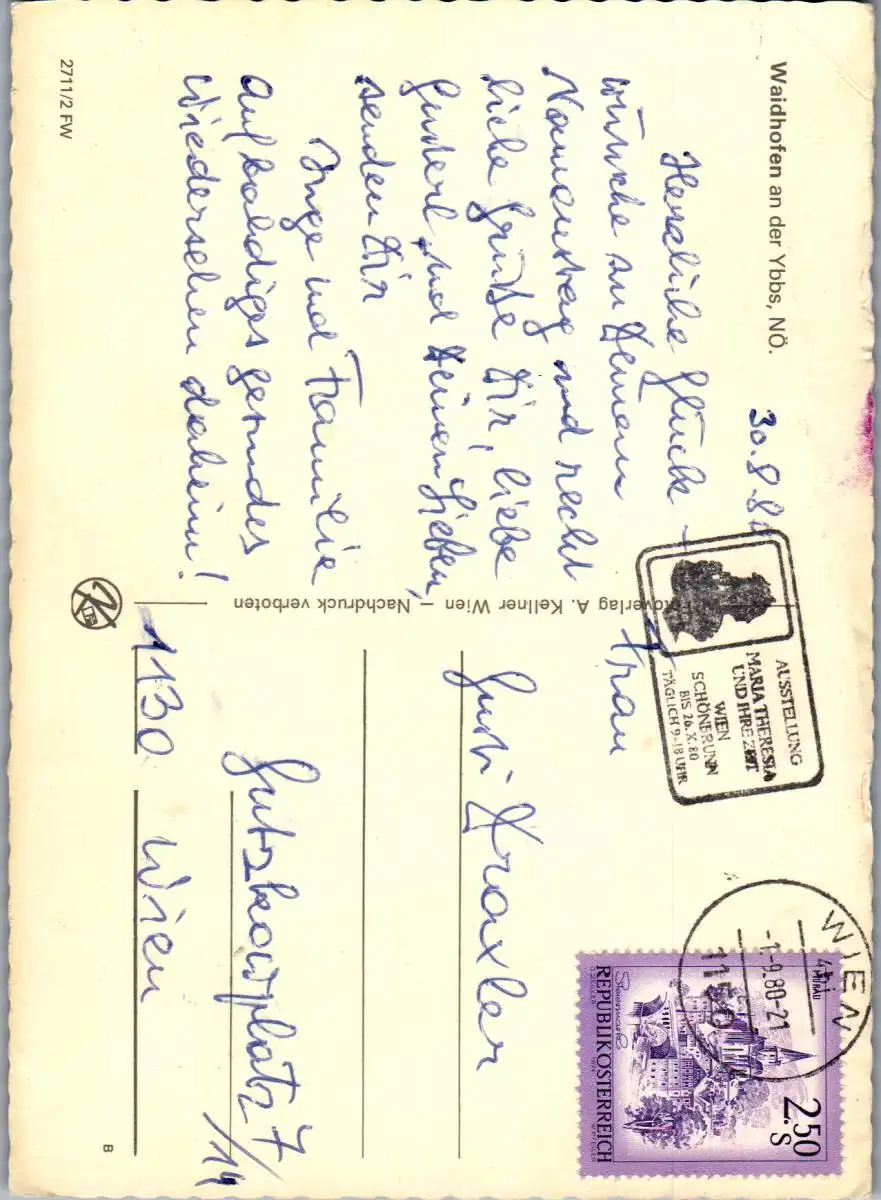 Waidhofen an der Ybbs, NÖ.
30.8.80
Herzliche Glück-
wünsche zu Deinem
Namenstag und recht
liebe Grüße Dir, liebe
Gusterl und Deinen Lieben,
senden Dir
Inge und Familie
Auf baldiges gesundes
Wiedersehen daheim!
2711/2 FW
Fotoverlag A. Kellner Wien – Nachdruck verboten
AUSSTELLUNG
MARIA THERESIA
UND IHRE ZEIT
WIEN
SCHÖNBRUNN
BIS 26.X.80
TÄGLICH 9-18 UHR
WIEN
-1.-9.80-21
1150
MURAU
2.50
S
Steiermark
REPUBLIK ÖSTERREICH
Frau
Gusti Draxler
Gutzkowplatz 7
/14
1130 Wien
B